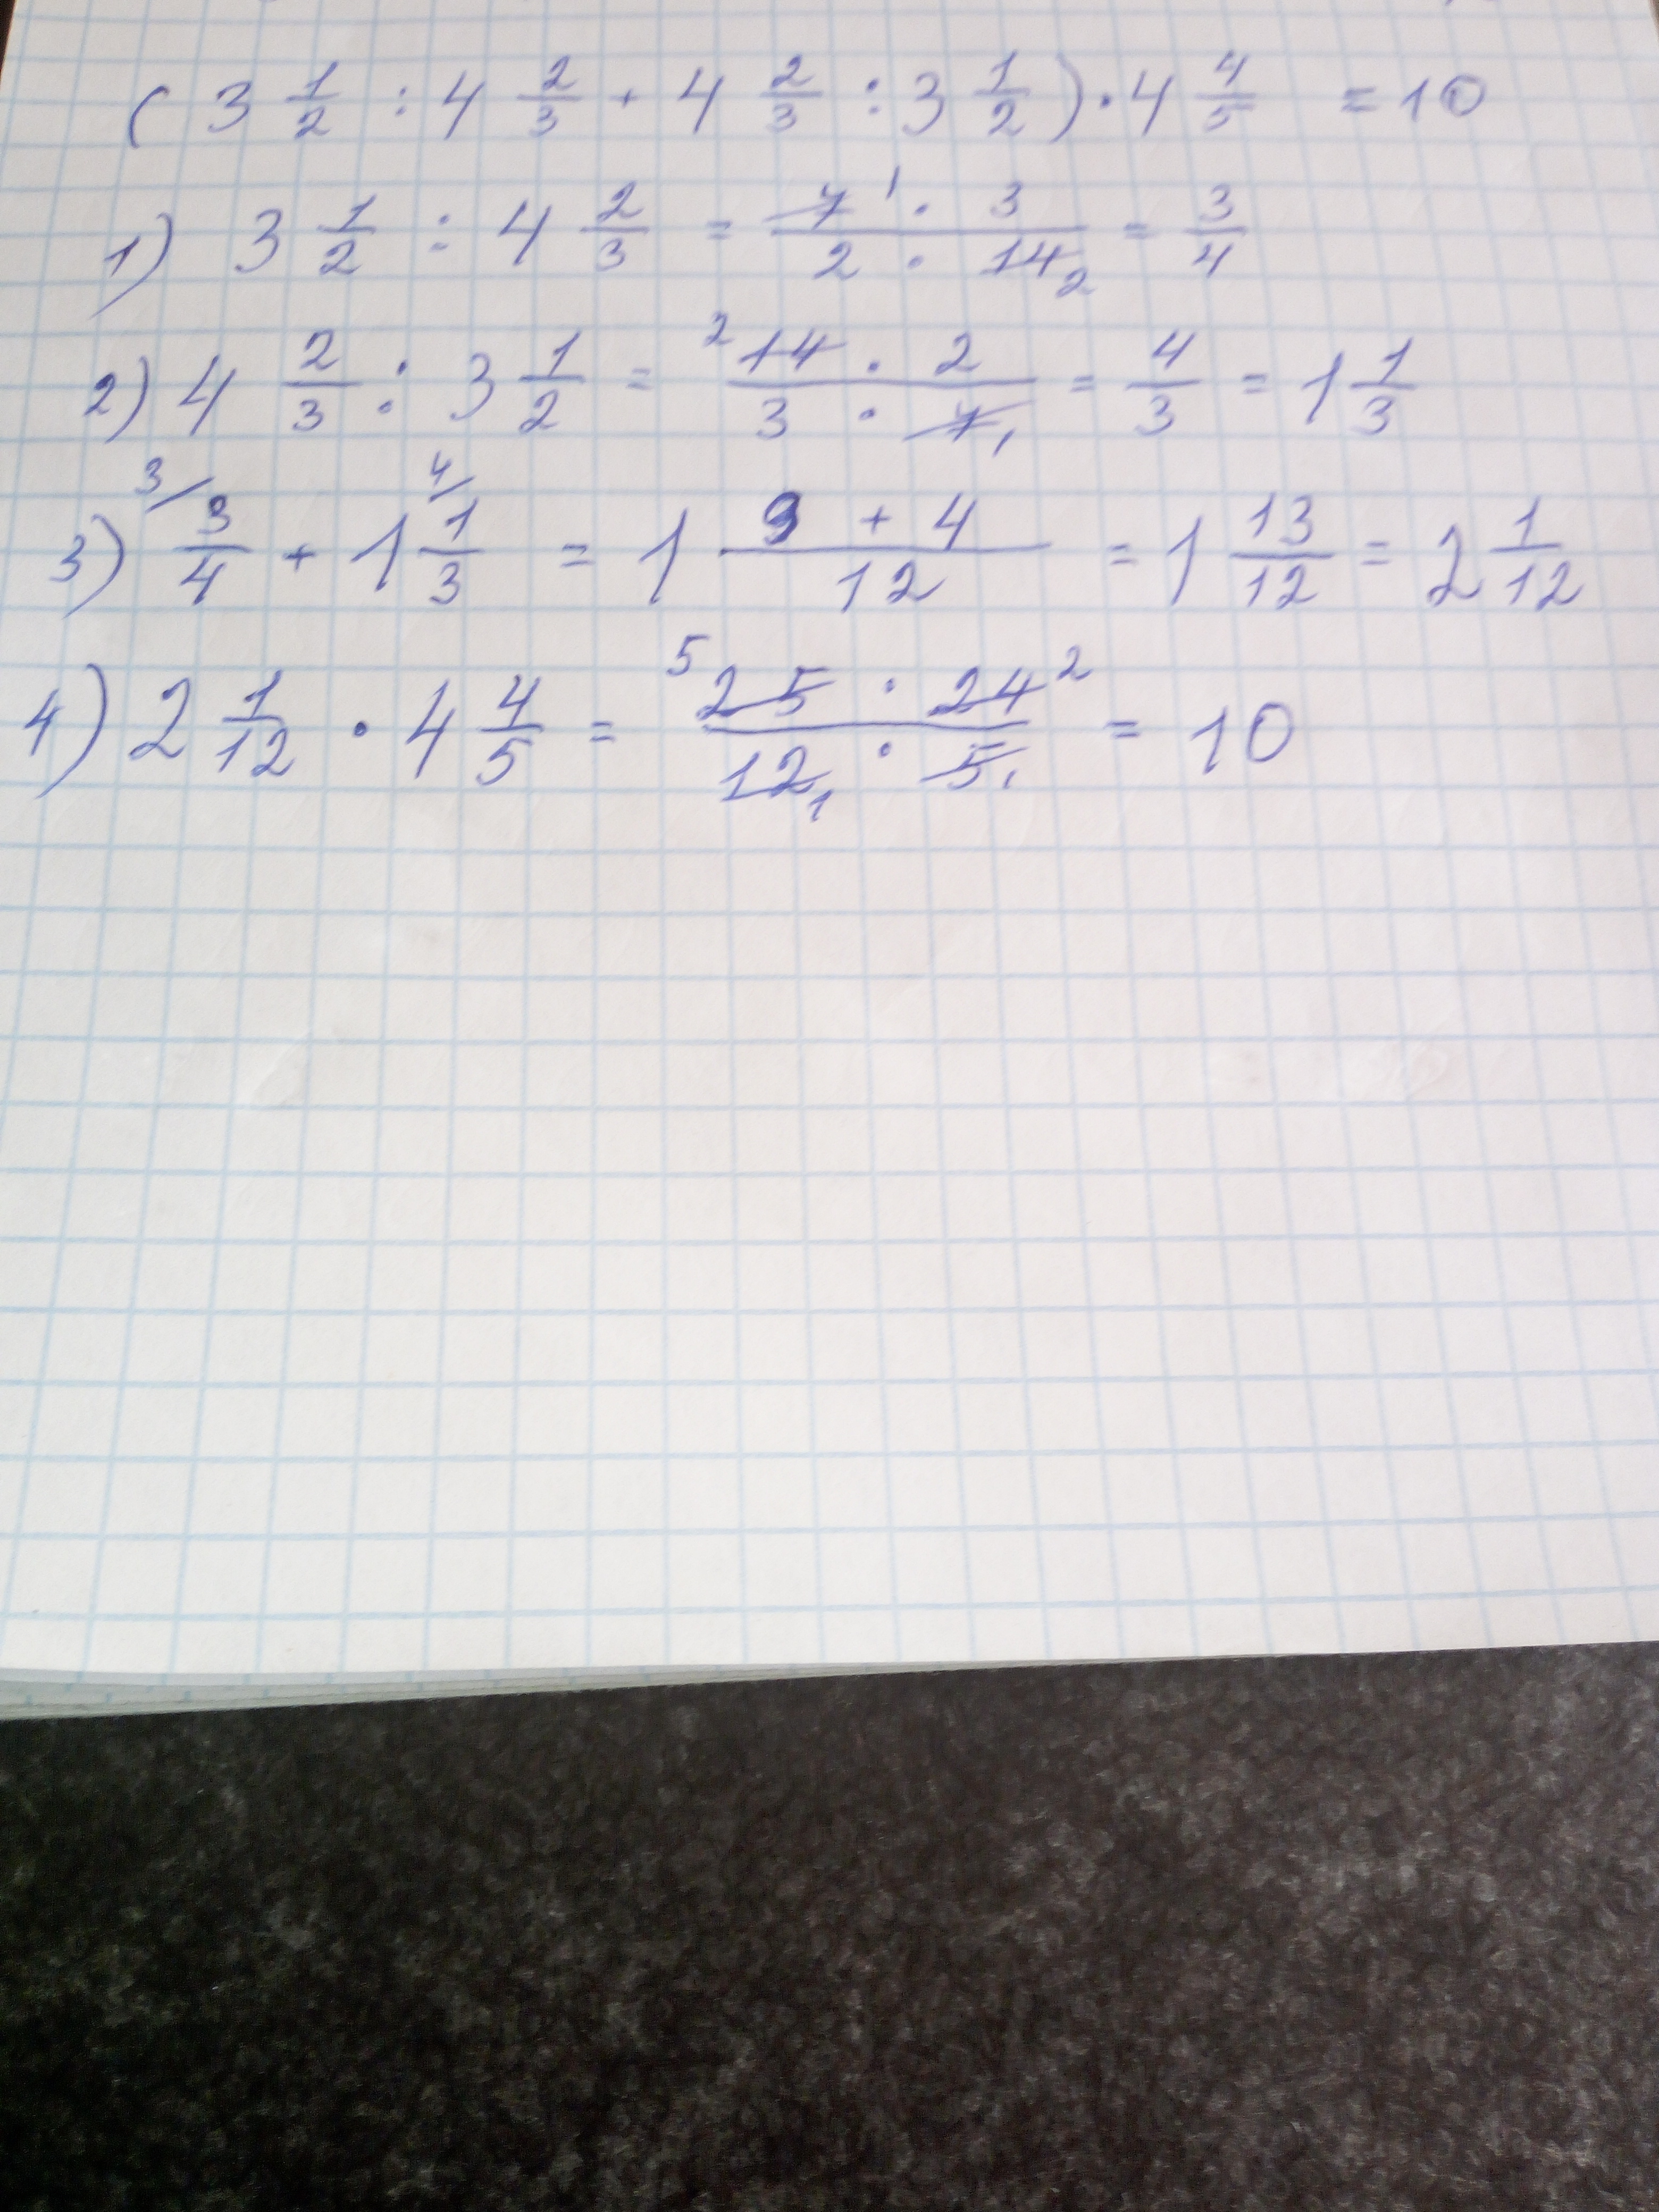 (3 1/2 : 4 2/3 + 4 2/3 : 3 1/2) · 4 4/5 = 10
1) 3 1/2 : 4 2/3 = 7 1 · 3 / 2 · 14 2 = 3/4
2) 4 2/3 : 3 1/2 = 2 14 · 2 / 3 · 7 1 = 4/3 = 1 1/3
3) 3/ 3/4 + 1 4/ 1/3 = 1 9 + 4 / 12 = 1 13/12 = 2 1/12
4) 2 1/12 · 4 4/5 = 5 25 · 24 2 / 12 1 · 5 1 = 10